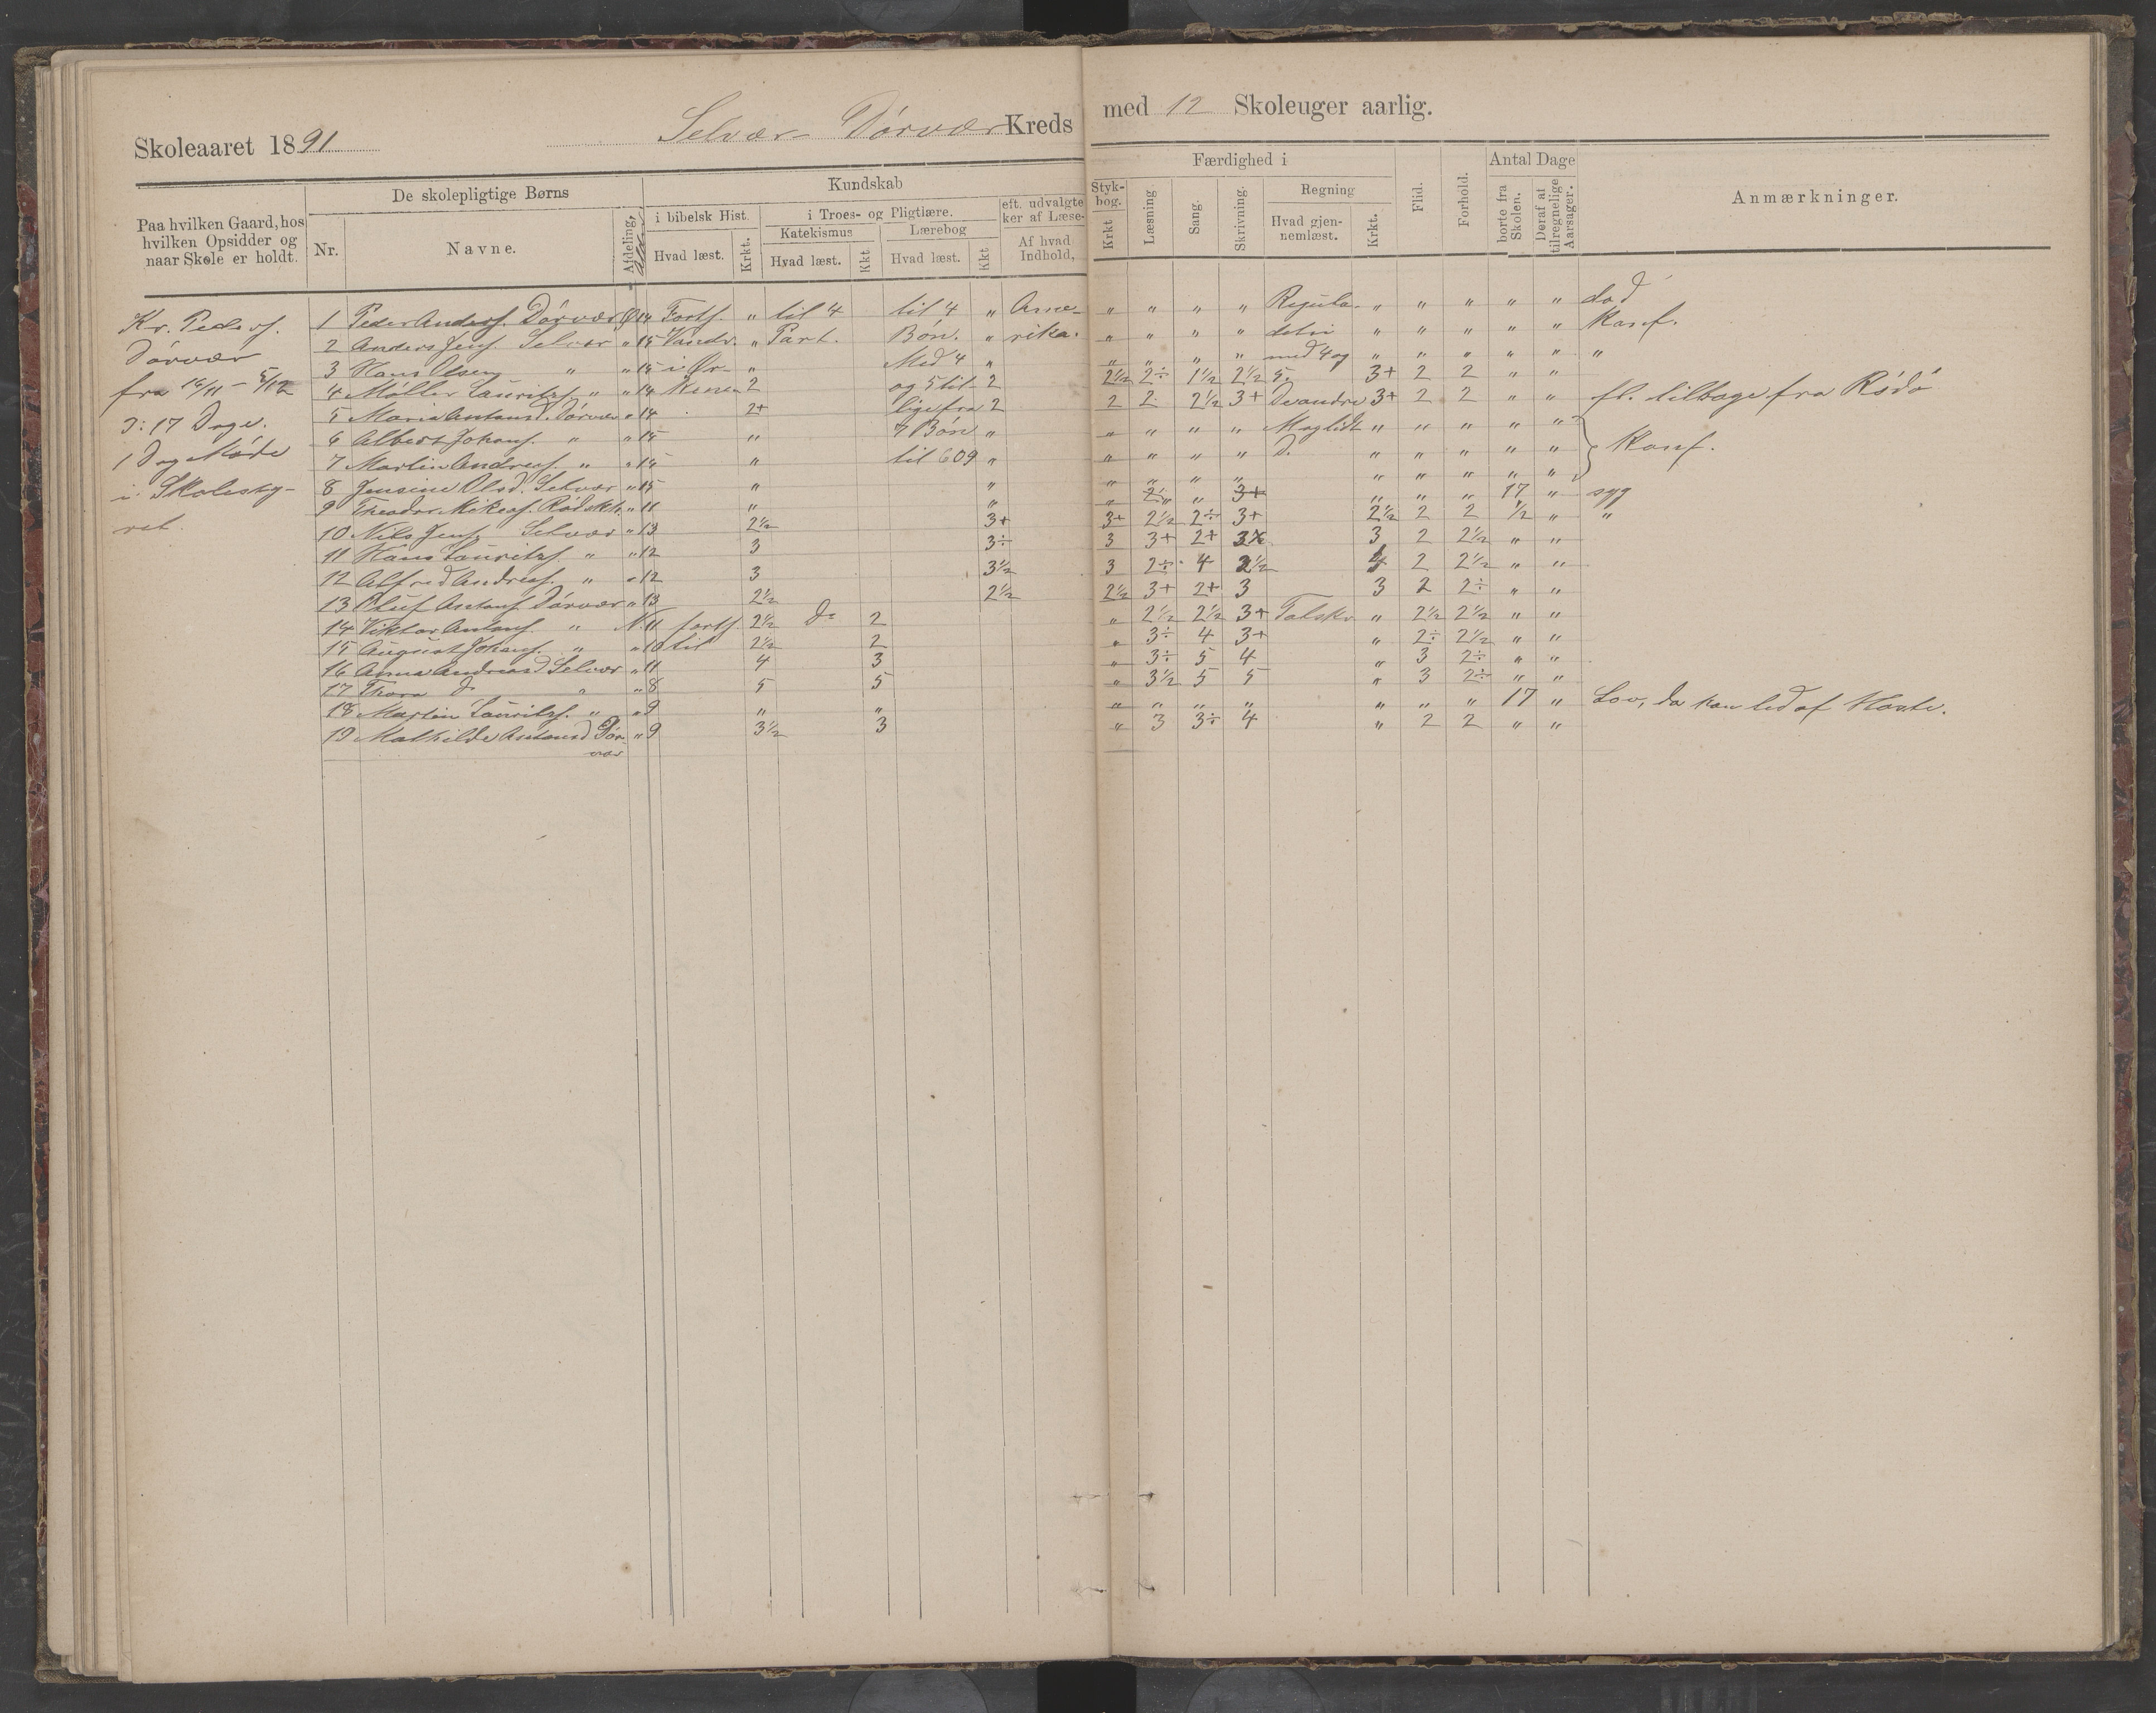 Skoleaaret 1891 Selvær-Dørvær Kreds med 12 Skoleuger aarlig.
Paa hvilken Gaard, hos hvilken Opsidder og naar Skole er holdt.
De skolepligtige Børns
Nr. Navne. Afdeling. Alder
Kundskab
i bibelsk Hist. i Troes- og Pligtlære. eft. udvalgte
ker af Læse-
Katekismus Lærebog
Hvad læst. Krkt. Hvad læst. Kkt Hvad læst. Kkt Af hvad Indhold,
Færdighed i
Styk-
bog. Krkt Læsning. Sang. Skrivning. Regning
Hvad gjen-
nemlæst. Krkt.
Flid. Forhold.
Antal Dage
borte fra Skolen. Deraf af tilregnelige Aarsager.
Anmærkninger.
Kr. Peders.
Dørvær
fra 16/11 - 5/12
3: 17 Dage.
1 Dag Møde
i Skolesty-
ret.
1 Peder Anders. Dørvær Ø 14 Forts. " til 4 til 4 " Ame- " " " " Regula- " " " " " død
2 Anders Jens. Selvær " 15 Vandr. " Part. Bøn. " rika. " " " " detri " " " " " Konf.
3 Hans Olsen " " 15 i Ør- " Med 4 " " " " " med 4 og " " " " " "
4 Møller Lauritzs. " " 14 kenen 2 og 5 til 2 2½ 2÷ 1½ 2½ 5. 3+ 2 2 " "
5 Maria Antonsd. Dørvær " 14 2+ lige fra 2 2 2 2½ 3+ De andre 3+ 2 2 " " fl. tilbage fra Rødø
6 Albert Johans. " " 15 " 7 Bøn " " " " " " " " " "
7 Martin Andreas. " " 15 " til 609 " " " " " D. " " " " " Konf.
8 Jensine Olsd. Selvær " 15 " " " " " " " " " " "
9 Theodor Mikeas. " 11 " " " " " " " " 17 " syg
10 Nils Jens. Selvær " 13 2½ 3+ 3+ 2½ 2÷ 3+ 2½ 2 2 ½ " "
11 Hans Lauritzs. " " 12 3 3÷ 3 3+ 2+ 3 2 2½ " "
12 Alfred Andreas. " " 12 3 3½ 3 2÷ 4 2½ 4 2 2½ " "
13 Oluf Antons. Dørvær " 13 2½ 2½ 2½ 3+ 2+ 3 3 2 2÷ " "
14 Viktor Antons. " N. 11 forts. 2½ Do 2 " 2½ 2½ 3+ Talskr. " 2½ 2½ " "
15 August Johans. " " 10 til 2½ 2 " 3÷ 4 3+ " 2÷ 2½ " "
16 Anna Andreasd Selvær " 11 4 3 " 3÷ 5 4 " 3 2÷ " "
17 Thora Do " " 8 5 5 " 3½ 5 5 " 3 2÷ " "
18 Martin Lauritzs. " " 9 " " " " " " " " " 17 " Lov, da han led af Hoste.
19 Mathilde Antonsd Dør- " 9 3½ 3 " 3 3÷ 4 " 2 2 " "
vær